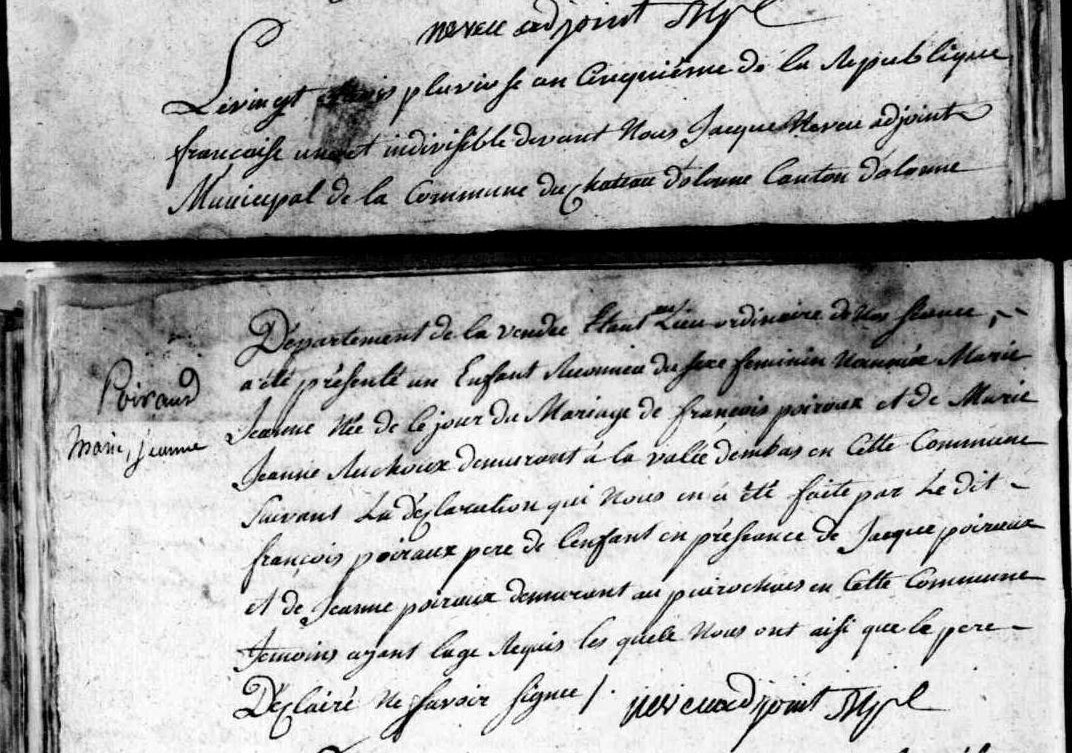 neveu adjoint Mpl
Le vingt pluviose an Cinquiéme de la Republique
francaise une et indivisible devant Nous Jacque Neveu adjoint
Municipal de la Commune du Chateau dolonne Canton dolonne
Département de la vendée Etant au Lieu ordinaire de Nos séance,
a été présenté un Enfant Reconnu du sexe feminin Nommée Marie
Jeanne Née de ce jour du Mariage de françois poiraux et de Marie
Jeanne demurant à la valée dembas en Cette Commune
Suivant La déclaration qui Nous en a été faite par Le dit
françois poiraux pere de lenfant en préseance de Jacque poiraux
et de Jeanne poiraux demurant au en Cette Commune
Temoins ayant lage Requis les quele Nous ont aisi que le pere
Déclairé Ne savoir signer /. neveu adjoint Mpl
Poiraud
Marie, Jeanne